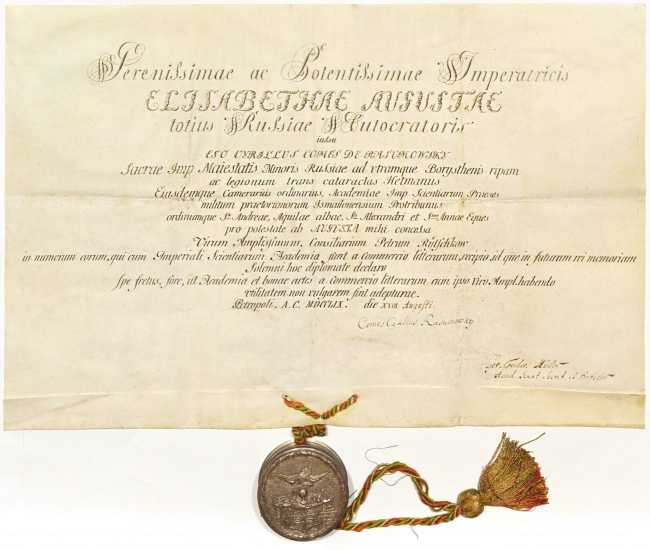 Serenissimae ac Potentissimae Imperatricis
ELISABETHAE AUGUSTAE
totius Russiae Autocratoris
iussu
EGO CYRILLUS COMES DE RASUMOWSKY
Sacrae Imp. Maiestatis Minoris Russiae ad utramque Borysthenis ripam
ac legionum trans cataractas Hetmanus
Eiusdemque Camerarius ordinarius, Academiae Imp. Scientiarum Praeses
militum praetorianorum Ismailoviensium Protribunus
ordinumque St. Andreae, Aquilae albae, St. Alexandri et Stae Annae Eques
pro potestate ab AUGUSTA mihi concessa
Virum Amplissimum, Consiliarium Petrum Rütschkow
in numerum eorum, qui cum Imperiali Scientiarum Academia sunt a Commercio litterarum, recipio, id que in futuram rei memoriam
solemni hoc diplomate declaro
Spe fretus, fore, ut Academia et bonae artes a Commercio litterarum, cum ipso Viro Ampl. habendo
utilitatem non vulgarem sint adepturae.
Petropoli. A.C. MDCCLIX. die Augusti
Comes Cyrillus Rasumowsky